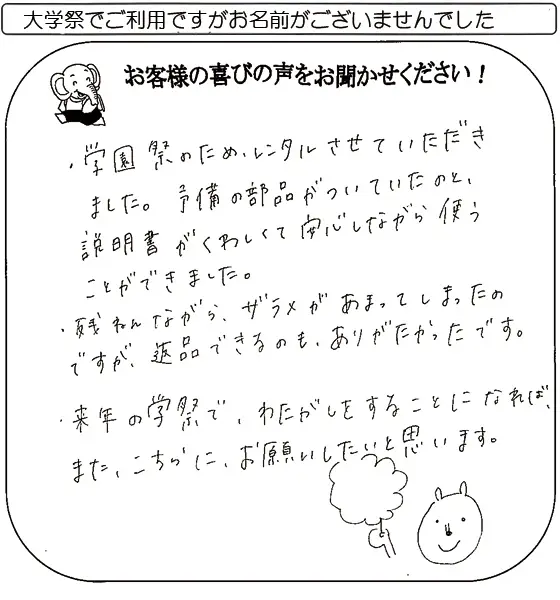 大学祭でご利用ですがお名前がございませんでした
お客様の喜びの声をお聞かせください！
・学園祭のため、レンタルさせていただき
ました。予備の部品がついていたのと、
説明書がくわしくて安心しながら使う
ことができました。
・残ねんながら、ザラメがあまってしまったの
ですが、返品できるのも、ありがたかったです。
・来年の学祭で、わたがしをすることになれば、
また、こちらに、お願いしたいと思います。